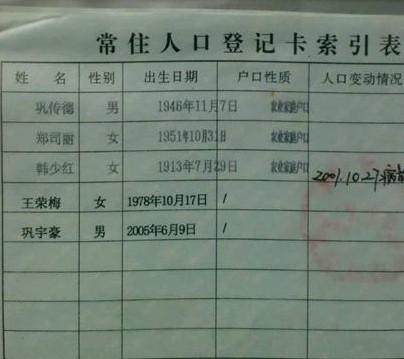 常住人口登记卡索引表
姓 名 性别 出生日期 户口性质 人口变动情况
巩传德 男 1946年11月7日 农业家庭户口
郑司丽 女 1951年10月31日 农业家庭户口
韩少红 女 1913年7月29日 农业家庭户口 2001.10.27病
王荣梅 女 1978年10月17日 /
巩宇豪 男 2005年6月9日 /